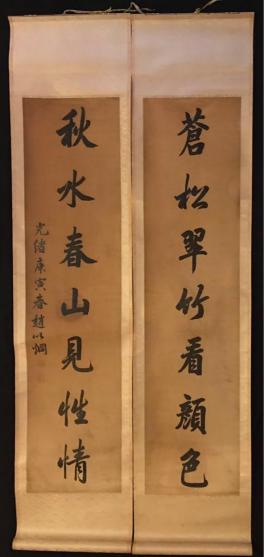 蒼松翠竹看顏色
秋水春山見性情
光緒庚寅春趙以炯